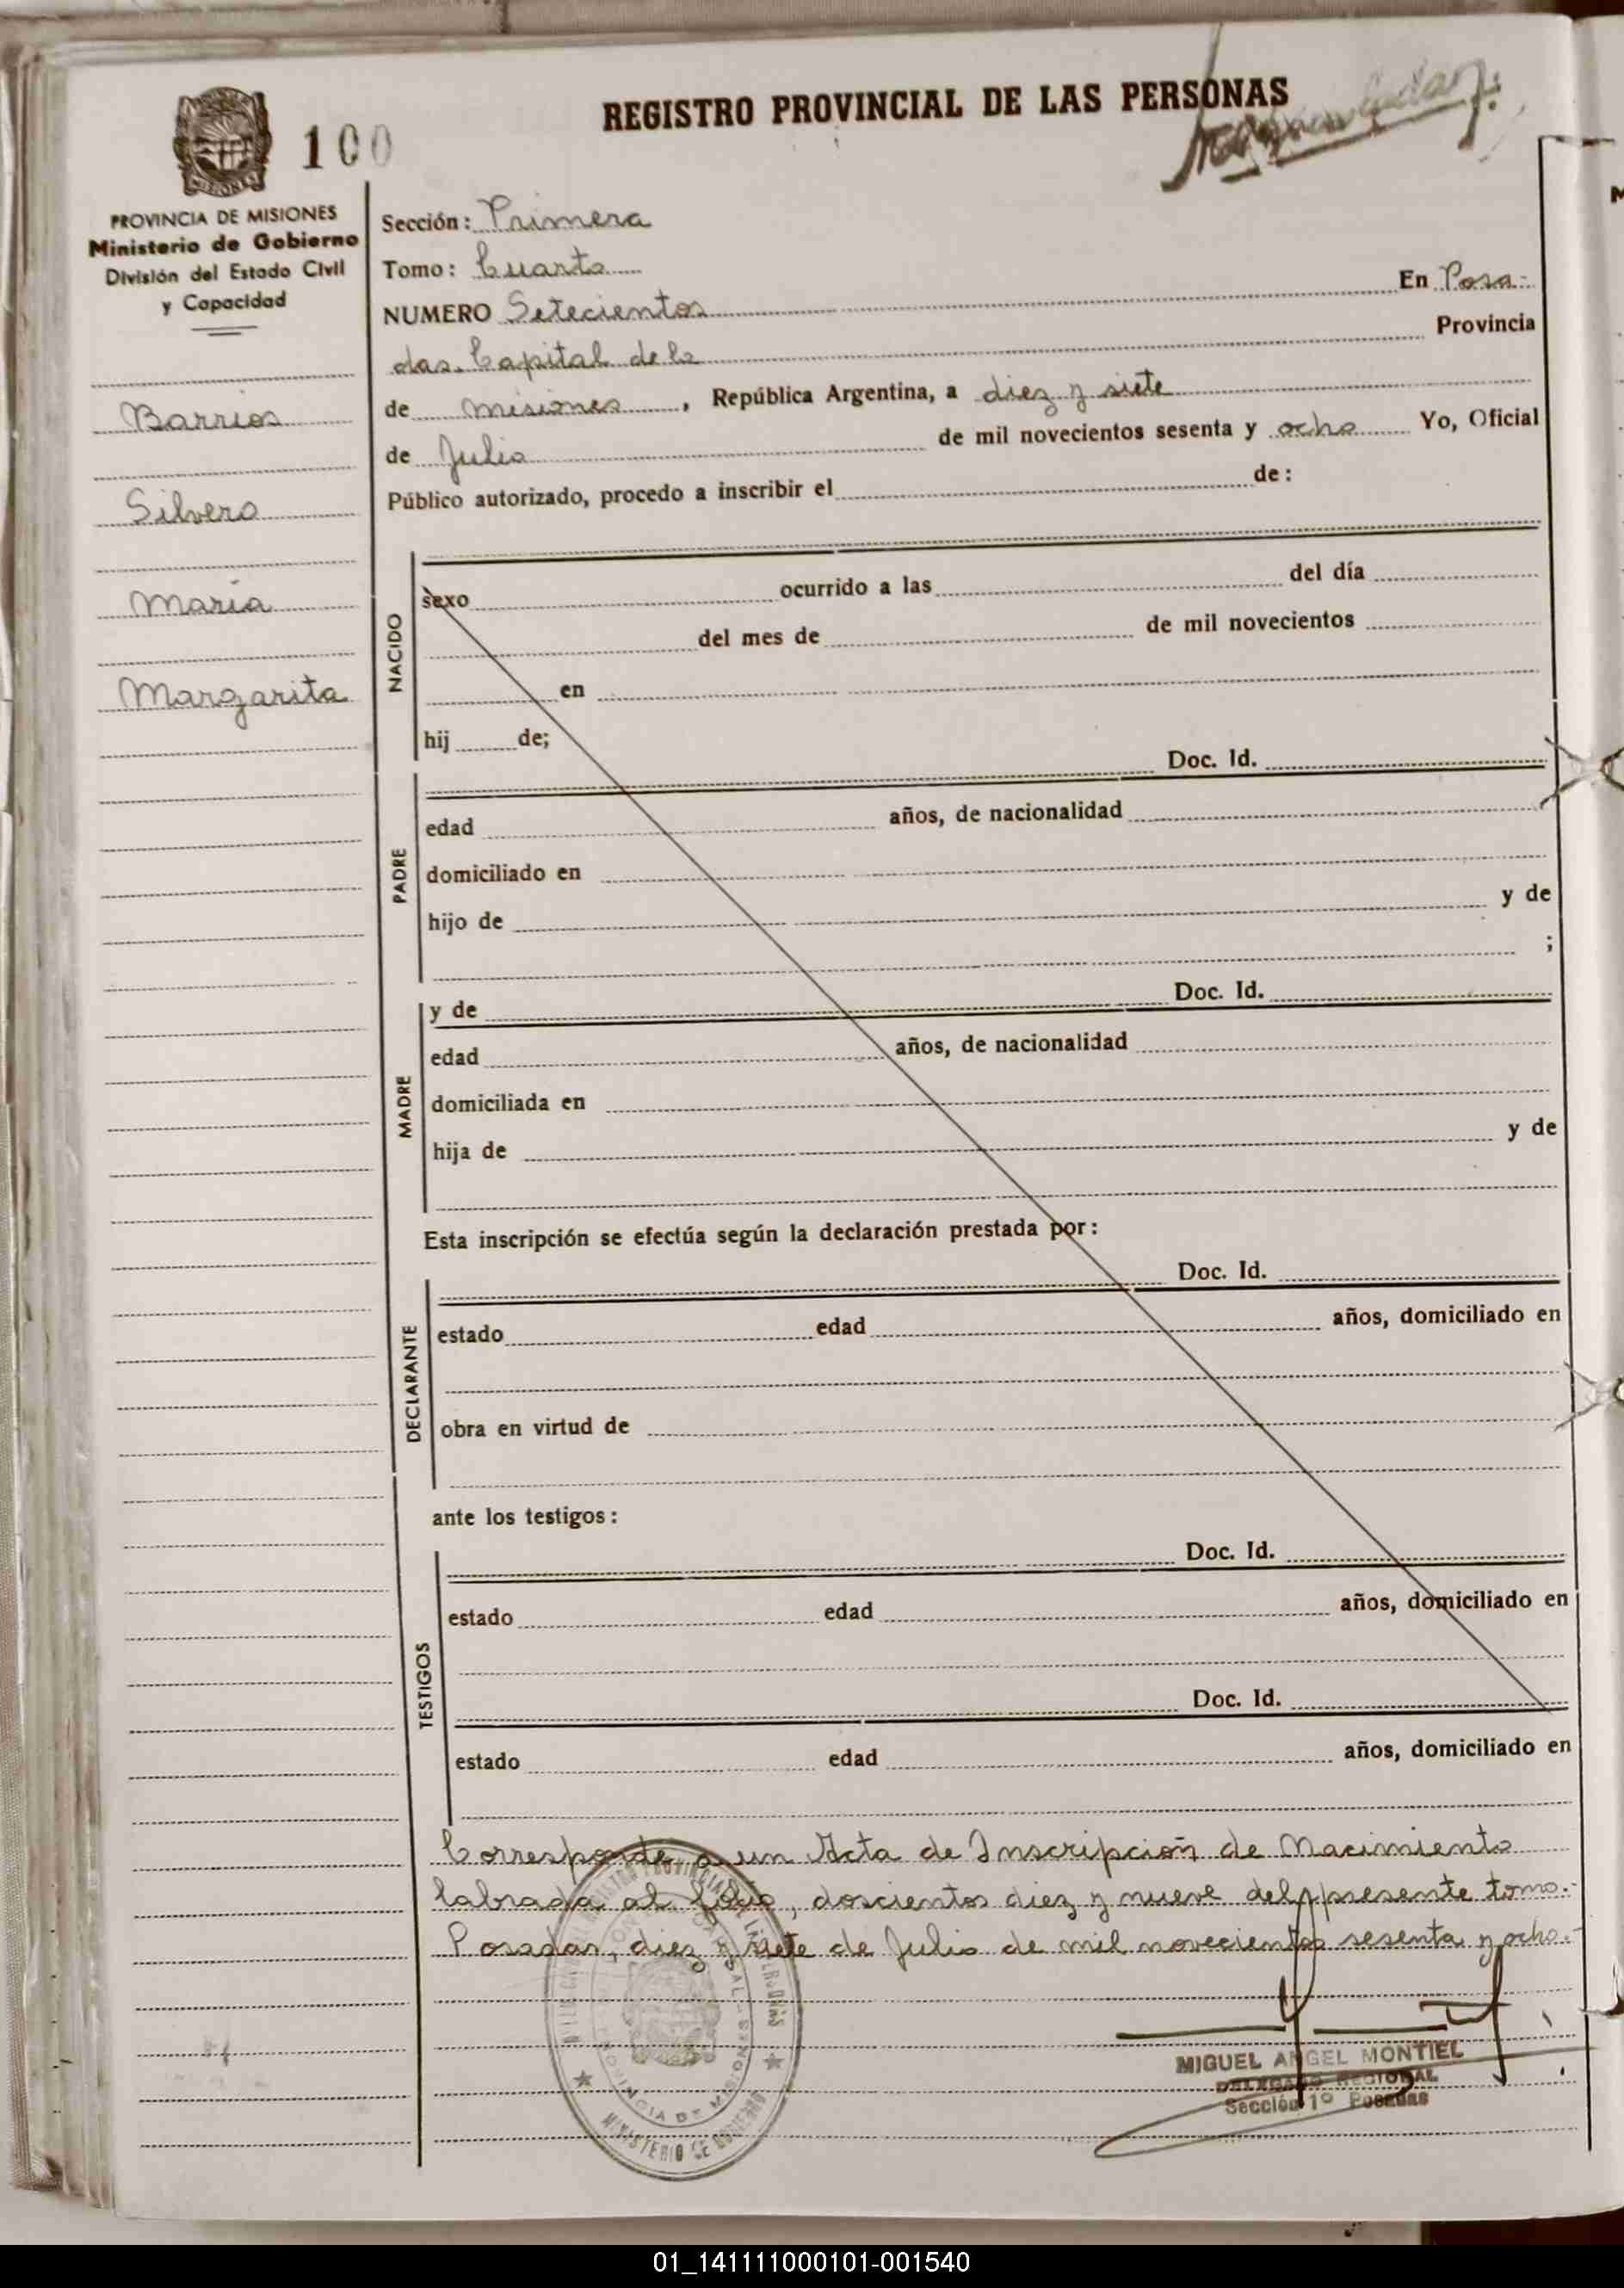 REGISTRO PROVINCIAL DE LAS PERSONAS
100
MISIONES
PROVINCIA DE MISIONES
Ministerio de Gobierno
División del Estado Civil
y Capacidad
Barrios
Silvero
María
Margarita
Sección: Primera
Tomo: Cuarto
NUMERO Setecientos En Posa-
das. Capital de la Provincia
de Misiones, República Argentina, a diez y siete
de Julio de mil novecientos sesenta y ocho Yo, Oficial
Público autorizado, procedo a inscribir el de:
NACIDO
sexo ocurrido a las del día
del mes de de mil novecientos
en
hij de;
PADRE
Doc. Id.
edad años, de nacionalidad
domiciliado en
hijo de y de
;
MADRE
y de Doc. Id.
edad años, de nacionalidad
domiciliada en
hija de y de
Esta inscripción se efectúa según la declaración prestada por:
DECLARANTE
Doc. Id.
estado edad años, domiciliado en
obra en virtud de
ante los testigos:
TESTIGOS
Doc. Id.
estado edad años, domiciliado en
Doc. Id.
estado edad años, domiciliado en
Corresponde a un Acta de Inscripción de Nacimiento
labrada al folio, doscientos diez y nueve del presente tomo.-
Posadas, diez y siete de Julio de mil novecientos sesenta y ocho.-
MIGUEL ANGEL MONTIEL
DELEGADO REGIONAL
Sección 1º Posadas
PROVINCIA DE MISIONES
MINISTERIO DE GOBIERNO
01_141111000101-001540